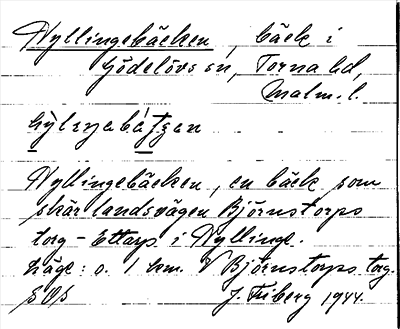 Hyllingebäcken, bäck i
Gödelövs sn, Torna hd,
Malm. l.
Hyllingebäcken, en bäck som
skär landsvägen Björnstorps
torg - Ettarp i Hyllinge.
Läge: o. 1 km. V Björnstorps torg.
J. Friberg 1944.